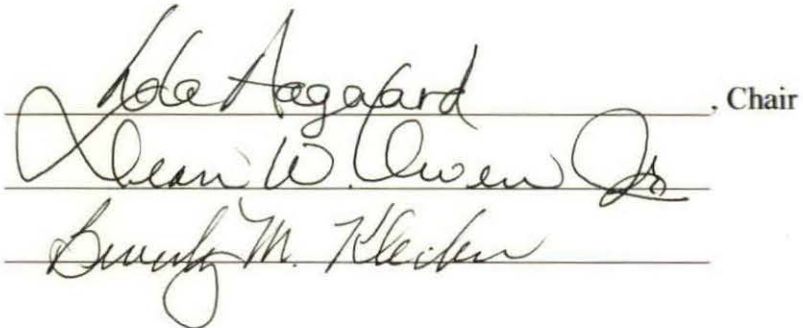 Lola Aagaard, Chair
Dean W. Owen Jr
Beverly M. Klecker